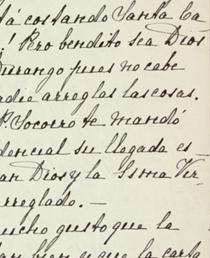 tá costando Santa Ca
! Pero bendito sea Dios
Durango pues no cabe
adie arreglas las cosas.
P. Socorro te mandó
dencial su llegada es-
an Dios y la Ssma Vir
rreglado. —
ucho gusto que la
an bien y que la carta